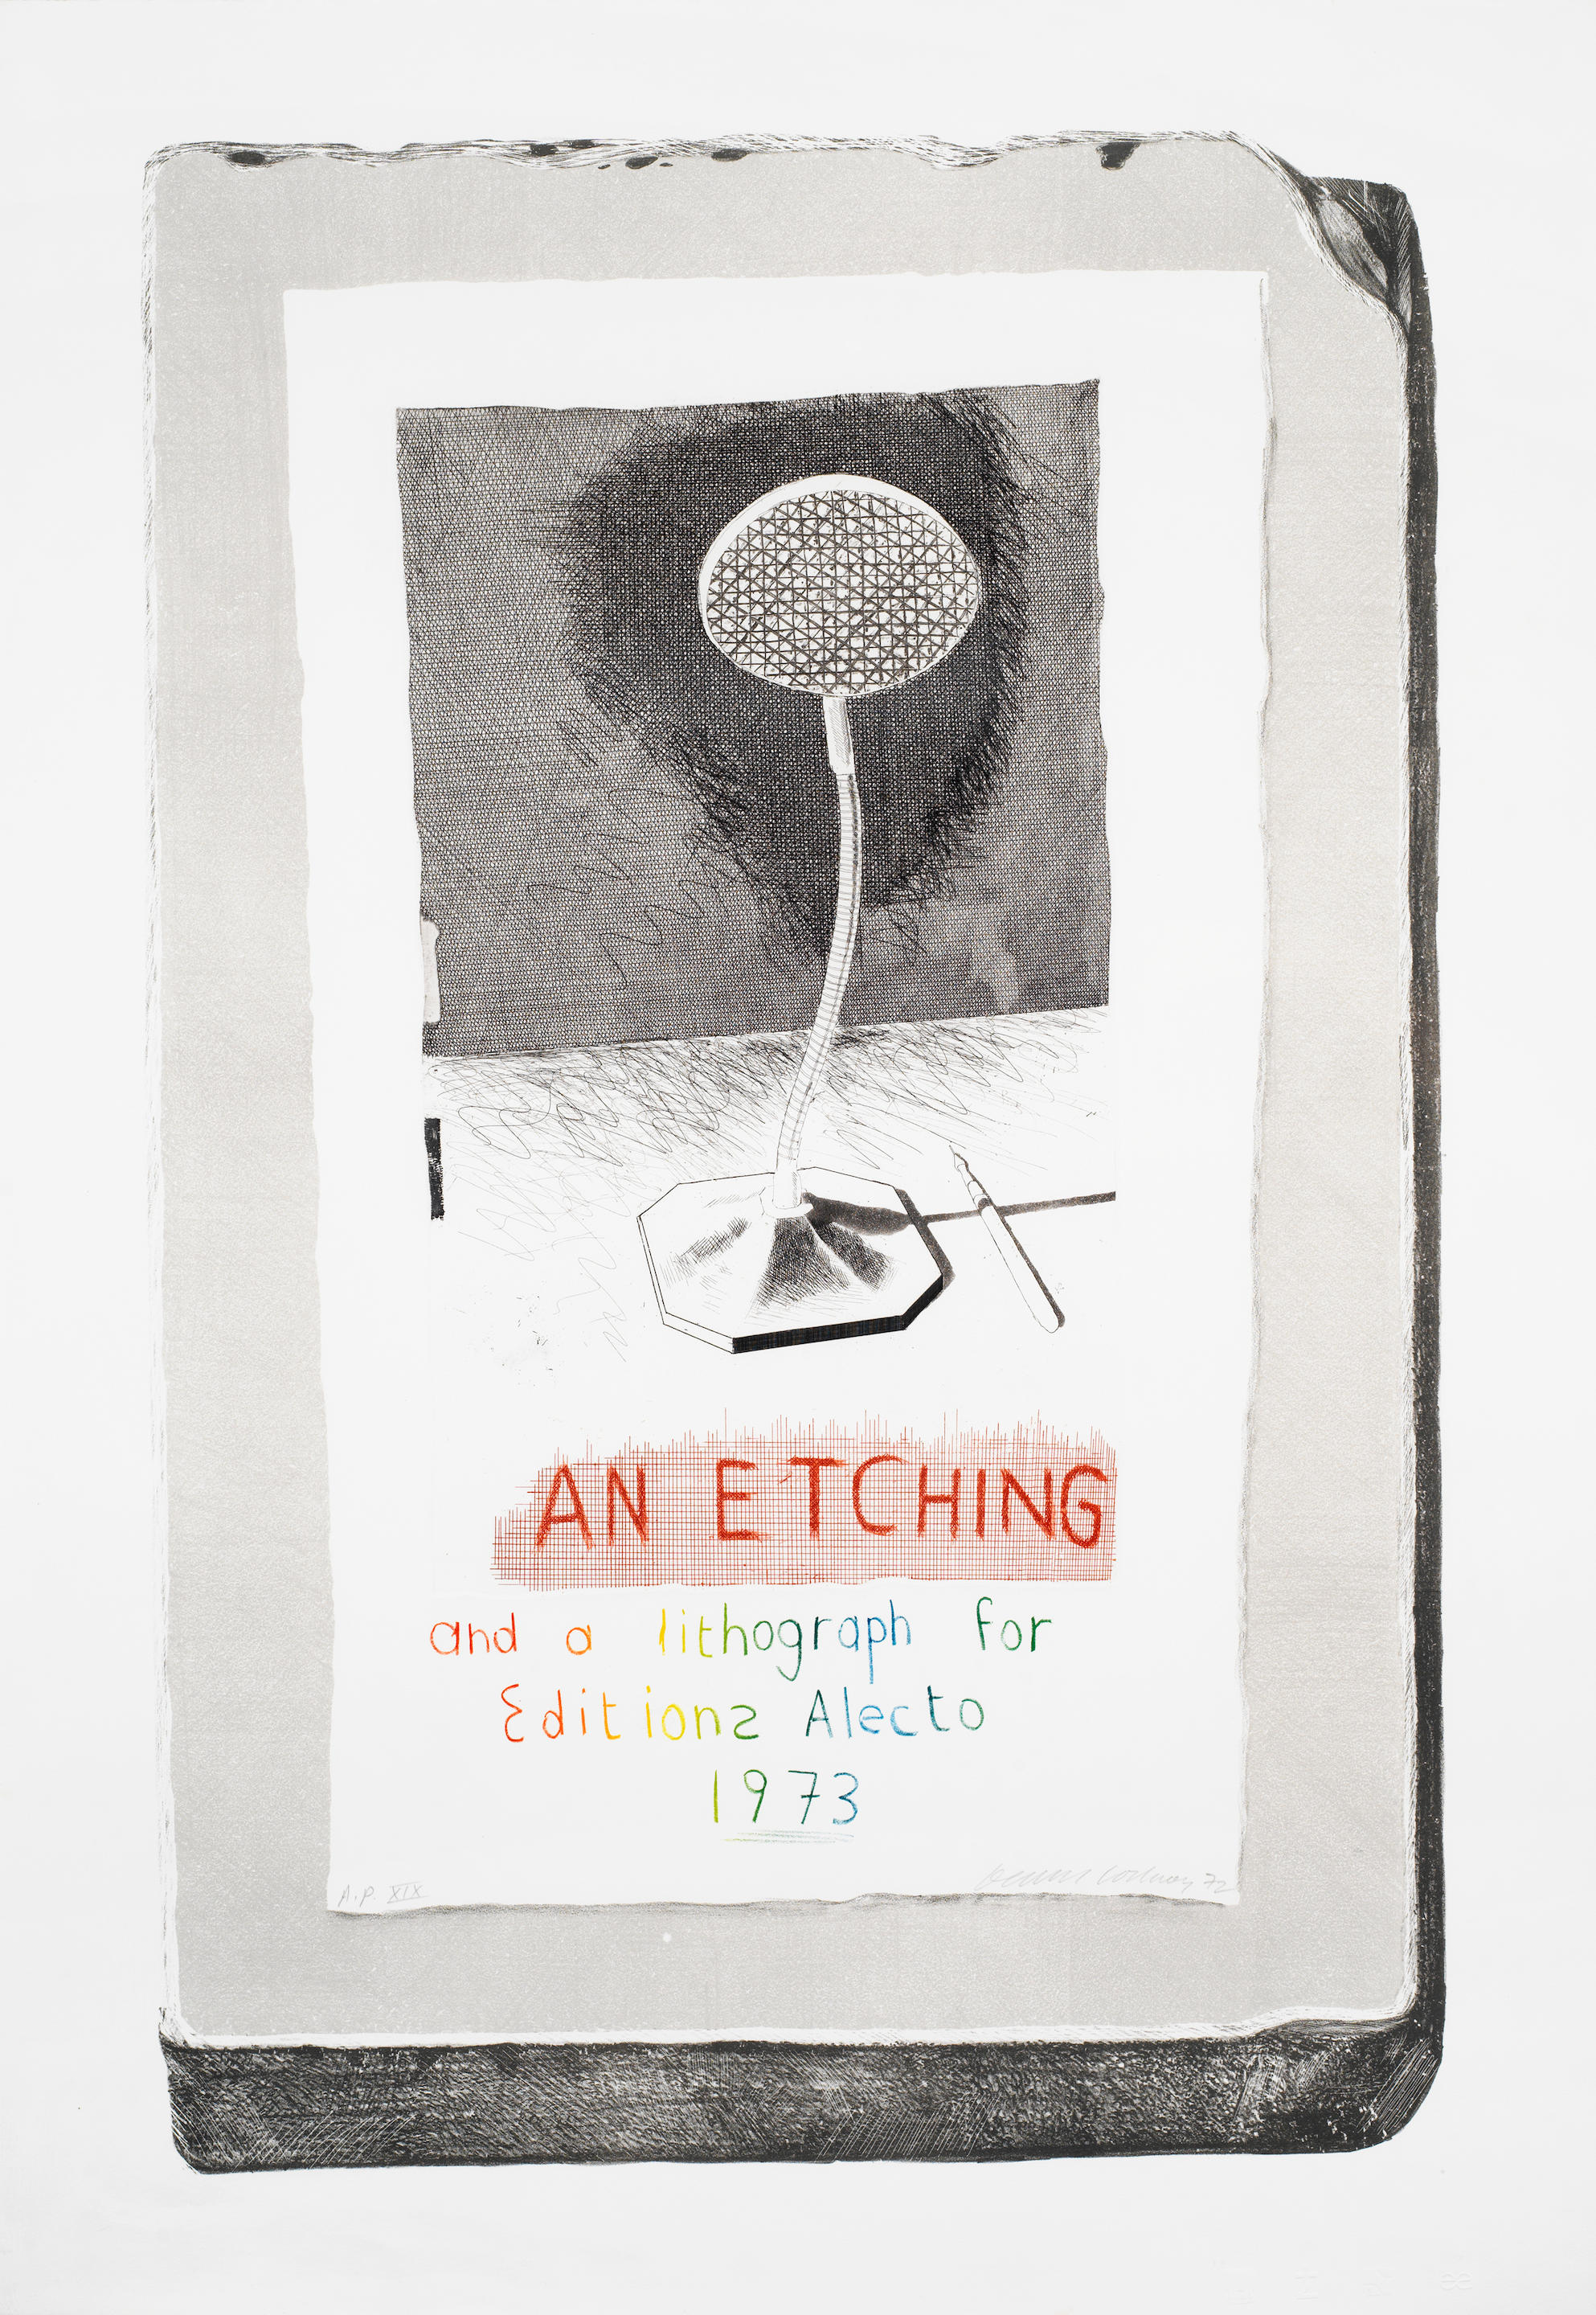 AN ETCHING
and a lithograph for
Editions Alecto
1973
A.P. XIX
David Hockney 72